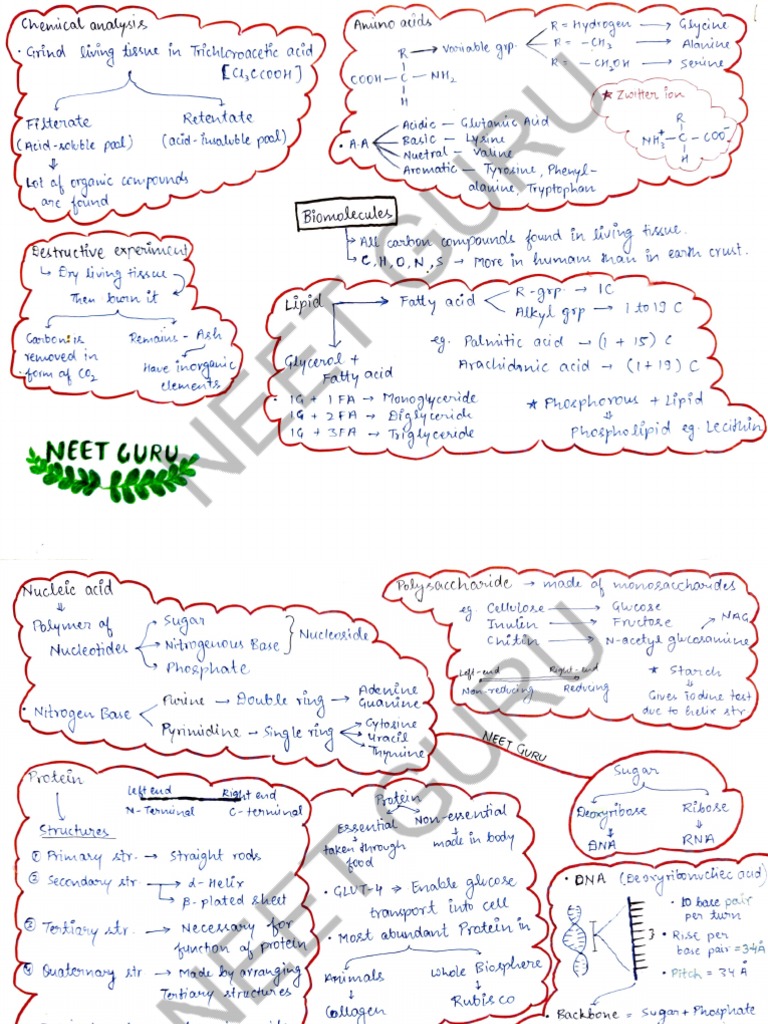 Chemical analysis
• Grind living tissue in Trichloroacetic acid
[Cl₃CCOOH]
Filterate
(Acid-soluble pool)
Retentate
(acid-insoluble pool)
Lot of organic compounds
are found
Amino acids
R → variable grp.
R = Hydrogen → Glycine
R = -CH₃ → Alanine
R = -CH₂OH → Serine
COOH - C - NH₂
H
★ Zwitter ion
R
NH₃⁺ - C - COO⁻
H
• A.A
Acidic - Glutamic Acid
Basic - Lysine
Nuetral - Valine
Aromatic - Tyrosine, Phenyl-
alanine, Tryptophan
Biomolecules
→ All carbon compounds found in living tissue.
→ C, H, O, N, S → More in humans than in earth crust.
Destructive experiment
↳ Dry living tissue
Then burn it
Carbon is
removed in
form of CO₂
Remains - Ash
Have inorganic
elements
Lipid → Fatty acid
R-grp. → 1C
Alkyl grp → 1 to 19 C
eg. Palmitic acid → (1 + 15) C
Arachidonic acid → (1+19) C
Glycerol +
Fatty acid
• 1G + 1FA → Monoglyceride
1G + 2FA → Diglyceride
1G + 3FA → Triglyceride
★ Phosphorous + Lipid
⇓
Phospholipid eg. Lecithin
NEET GURU
NEET GURU
Nucleic acid
⇓
Polymer of
Nucleotides
→ Sugar
→ Nitrogenous Base
} Nucleoside
→ Phosphate
• Nitrogen Base
Purine → Double ring → Adenine
Guanine
Pyrimidine → Single ring
Cytosine
Uracil
Thymine
Polysaccharide → made of monosaccharides
eg. Cellulose → Glucose
Inulin → Fructose
Chitin → N-acetyl glucosamine
NAG
Left-end Right-end
Non-reducing Reducing
★ Starch
⇓
Gives iodine test
due to helix str.
NEET GURU
NEET GURU
Sugar
Deoxyribose
⇓
DNA
Ribose
⇓
RNA
Protein
Left end Right end
N-Terminal C-terminal
Structures
① Primary str. → Straight rods
② Secondary str → α-Helix
→ β-plated sheet
③ Tertiary str. → Necessary for
function of protein
④ Quaternary str → Made by arranging
Tertiary structures
Protein
Essential
taken through
food
Non-essential
made in body
• GLUT-4 → Enable glucose
transport into cell
• Most abundant Protein in
Animals
Collagen
Whole Biosphere
Rubisco
• DNA (Deoxyribonucliec acid)
• 10 base pair
per turn
• Rise per
base pair = 3.4Å
• Pitch = 34 Å
• Backbone = Sugar + Phosphate
NEET GURU